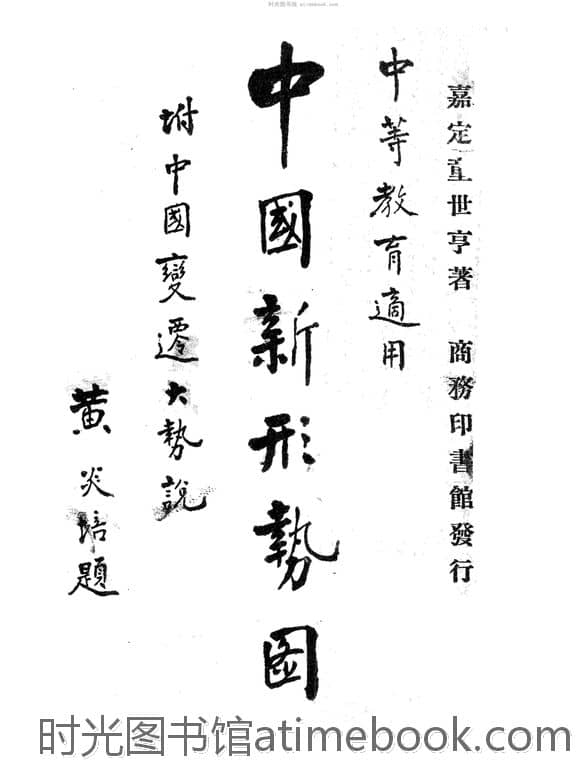 时光图书馆 atimebook.com
嘉定童世亨著 商務印書館發行
中等教育適用
中國新形勢圖
坿中國變遷大勢說
黃炎培題
时光图书馆atimebook.com